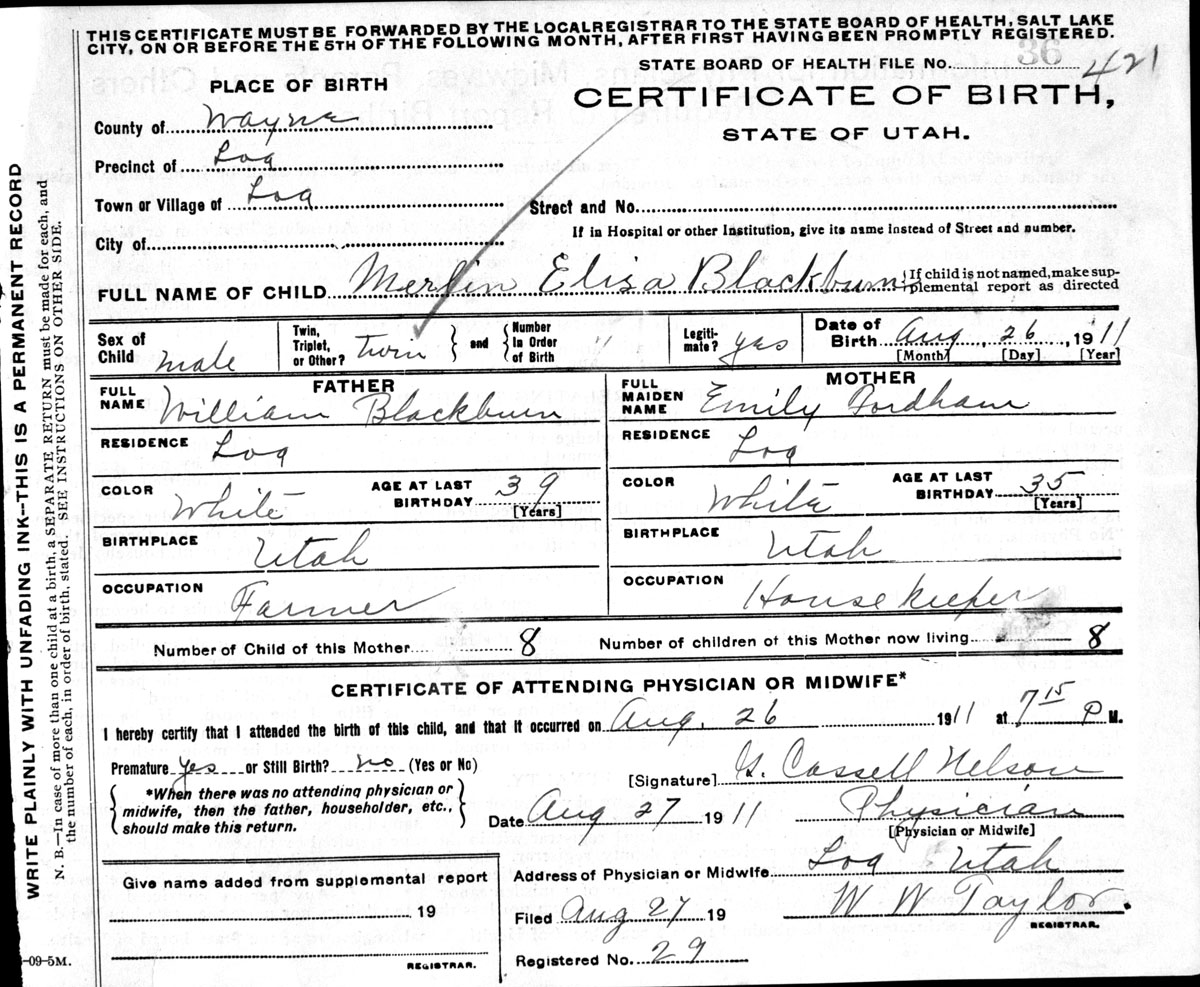 THIS CERTIFICATE MUST BE FORWARDED BY THE LOCAL REGISTRAR TO THE STATE BOARD OF HEALTH, SALT LAKE
CITY, ON OR BEFORE THE 5TH OF THE FOLLOWING MONTH, AFTER FIRST HAVING BEEN PROMPTLY REGISTERED.
STATE BOARD OF HEALTH FILE No. 36 421
PLACE OF BIRTH
CERTIFICATE OF BIRTH,
STATE OF UTAH.
County of Wayne
Precinct of Loa
Town or Village of Loa
Street and No.
City of
If in Hospital or other Institution, give its name instead of Street and number.
FULL NAME OF CHILD Merlin Eliza Blackburn { If child is not named, make sup-
plemental report as directed
Sex of Child male
Twin, Triplet, or Other? twin } and { Number In Order of Birth "
Legiti-mate? yes
Date of Birth Aug, 26, 1911
[Month] [Day] [Year]
FATHER
FULL NAME William Blackburn
RESIDENCE Loa
COLOR White AGE AT LAST BIRTHDAY 39
[Years]
BIRTHPLACE Utah
OCCUPATION Farmer
MOTHER
FULL MAIDEN NAME Emily Fordham
RESIDENCE Loa
COLOR White AGE AT LAST BIRTHDAY 35
[Years]
BIRTHPLACE Utah
OCCUPATION Housekeeper
Number of Child of this Mother 8 Number of children of this Mother now living 8
CERTIFICATE OF ATTENDING PHYSICIAN OR MIDWIFE*
I hereby certify that I attended the birth of this child, and that it occurred on Aug. 26 1911 at 7 15 P M.
Premature yes or Still Birth? no (Yes or No)
{ *When there was no attending physician or
midwife, then the father, householder, etc.,
should make this return. }
[Signature] G. Cassell Nelson
Date Aug 27 1911 Physician
[Physician or Midwife]
Address of Physician or Midwife Loa Utah
Filed Aug 27 19 W W Taylor.
REGISTRAR.
Registered No. 29
Give name added from supplemental report
19
REGISTRAR.
-09-5M.
WRITE PLAINLY WITH UNFADING INK--THIS IS A PERMANENT RECORD
N. B.—In case of more than one child at a birth, a SEPARATE RETURN must be made for each, and
the number of each, in order of birth, stated. SEE INSTRUCTIONS ON OTHER SIDE.